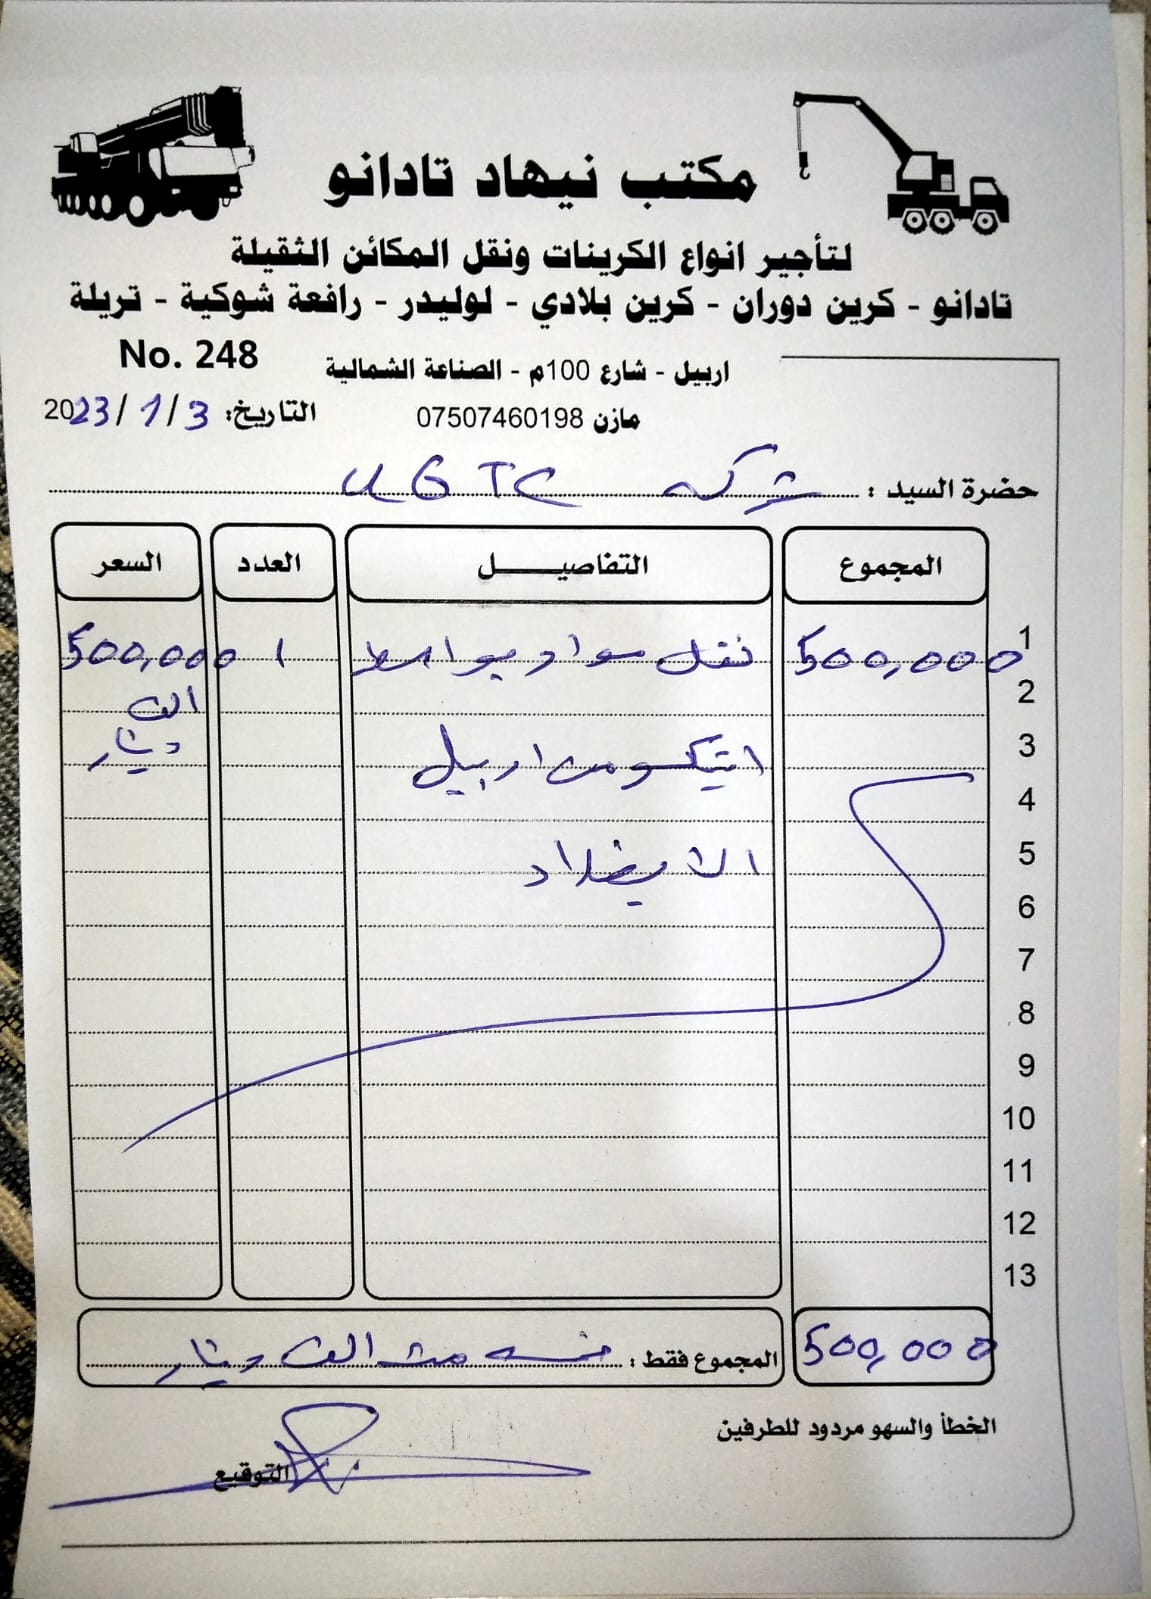 مكتب نيهاد تادانو
لتأجير انواع الكرينات ونقل المكائن الثقيلة
تادانو - كرين دوران - كرين بلادي - لوليدر - رافعة شوكية - تريلة
No. 248
اربيل - شارع 100م - الصناعة الشمالية
التاريخ: 3/1/2023
مازن 07507460198
حضرة السيد : شركه UGTC
المجموع التفاصيل العدد السعر
1 500,000 نقل مواد بواسط 1 500,000
2 الف
3 انتيكو من اربيل دينار
4
5 الى بغداد
6
7
8
9
10
11
12
13
500,000 المجموع فقط : خمسه مئة الف دينار
الخطأ والسهو مردود للطرفين
التوقيع